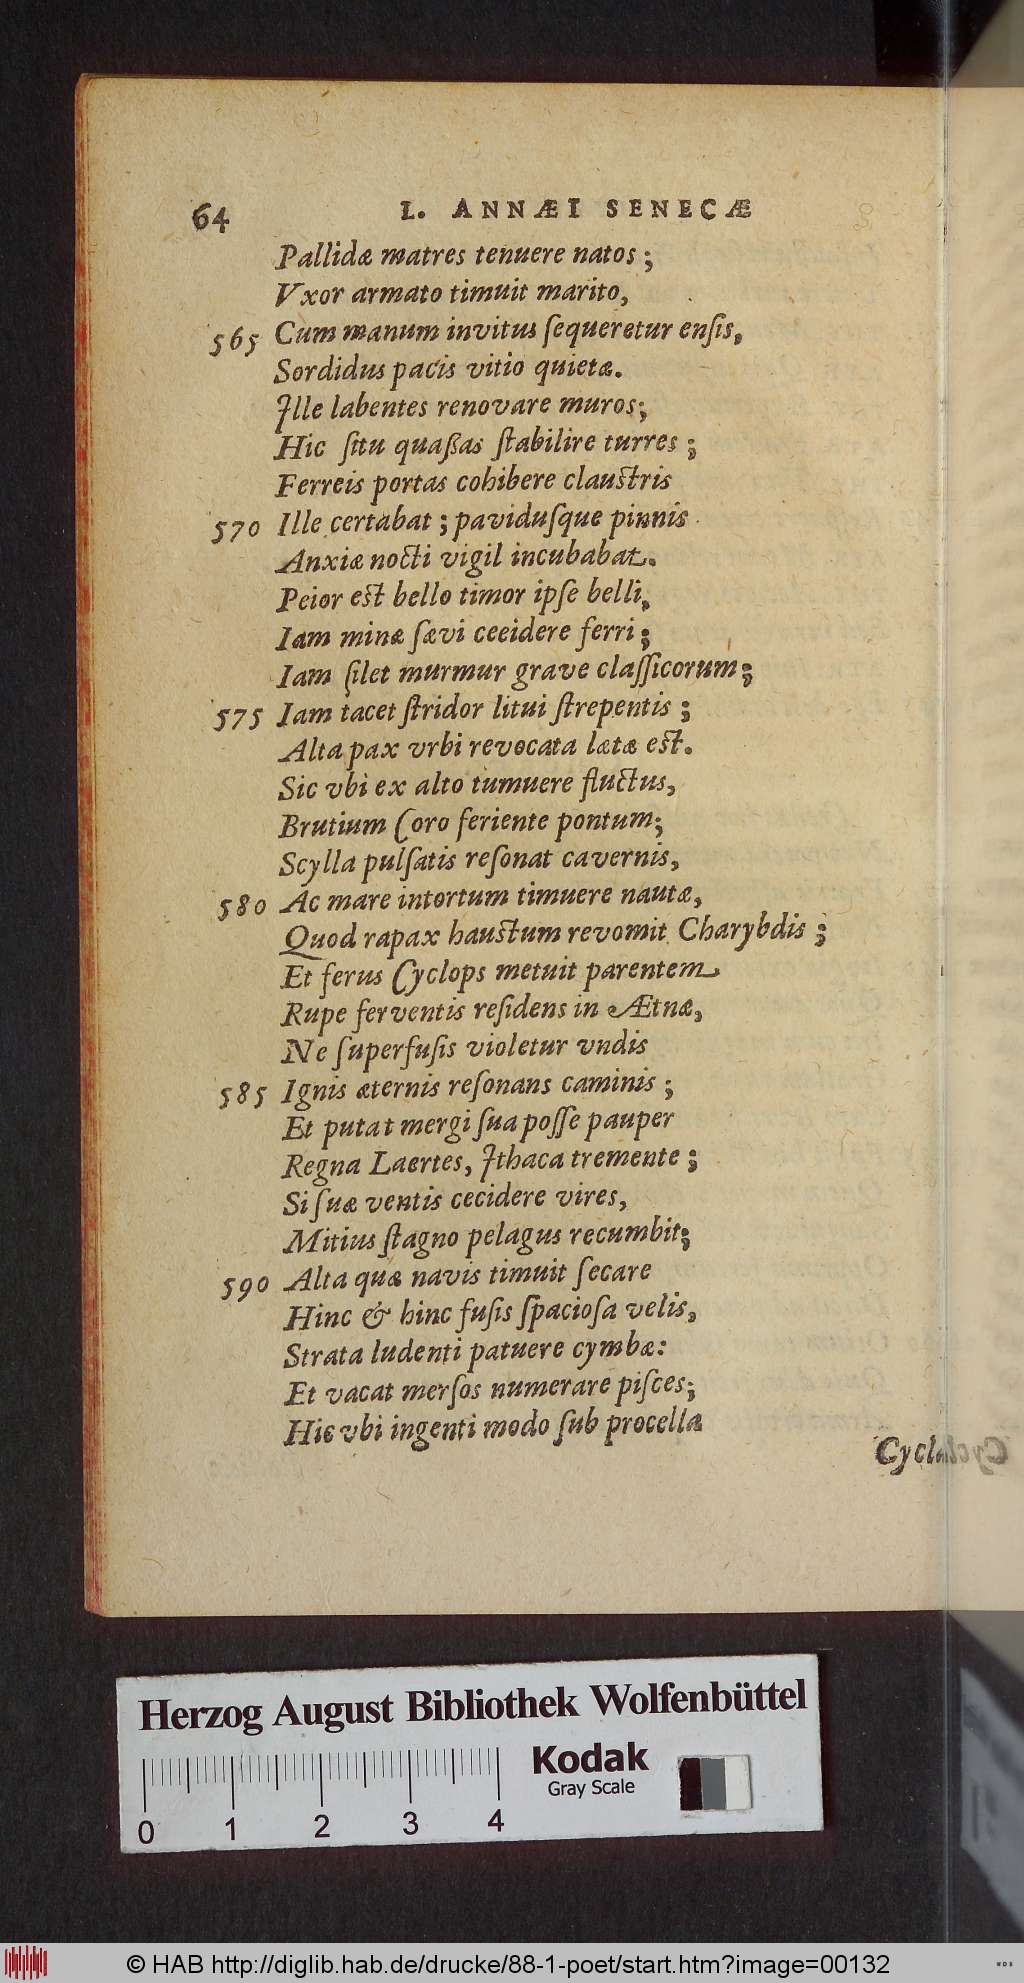 64 L. ANNÆI SENECÆ
Pallidæ matres tenuere natos ;
Vxor armato timuit marito,
565 Cum manum invitus ſequeretur enſis,
Sordidus pacis vitio quietæ.
Ille labentes renovare muros;
Hic ſitu quaßas ſtabilire turres ;
Ferreis portas cohibere clauſtris
570 Ille certabat ; paviduſque pinnis
Anxiæ nocti vigil incubabat.
Peior eſt bello timor ipſe belli,
Iam minæ ſævi ceeidere ferri ;
Iam ſilet murmur grave claſſicorum ;
575 Iam tacet ſtridor litui ſtrepentis ;
Alta pax vrbi revocata lætæ eſt.
Sic vbi ex alto tumuere fluctus,
Brutium Coro feriente pontum;
Scylla pulſatis reſonat cavernis,
580 Ac mare intortum timuere nautæ,
Quod rapax hauſtum revomit Charybdis ;
Et ferus Cyclops metuit parentem
Rupe ferventis reſidens in Ætnæ,
Ne ſuperfuſis violetur vndis
585 Ignis æternis reſonans caminis ;
Et putat mergi ſua poſſe pauper
Regna Laertes, Ithaca tremente ;
Si ſuæ ventis cecidere vires,
Mitius ſtagno pelagus recumbit;
590 Alta quæ navis timuit ſecare
Hinc & hinc fuſis ſpacioſa velis,
Strata ludenti patuere cymbæ:
Et vacat merſos numerare piſces;
Hic vbi ingenti modo ſub procella
Cycla
Herzog August Bibliothek Wolfenbüttel
Kodak
Gray Scale
0 1 2 3 4
© HAB http://diglib.hab.de/drucke/88-1-poet/start.htm?image=00132